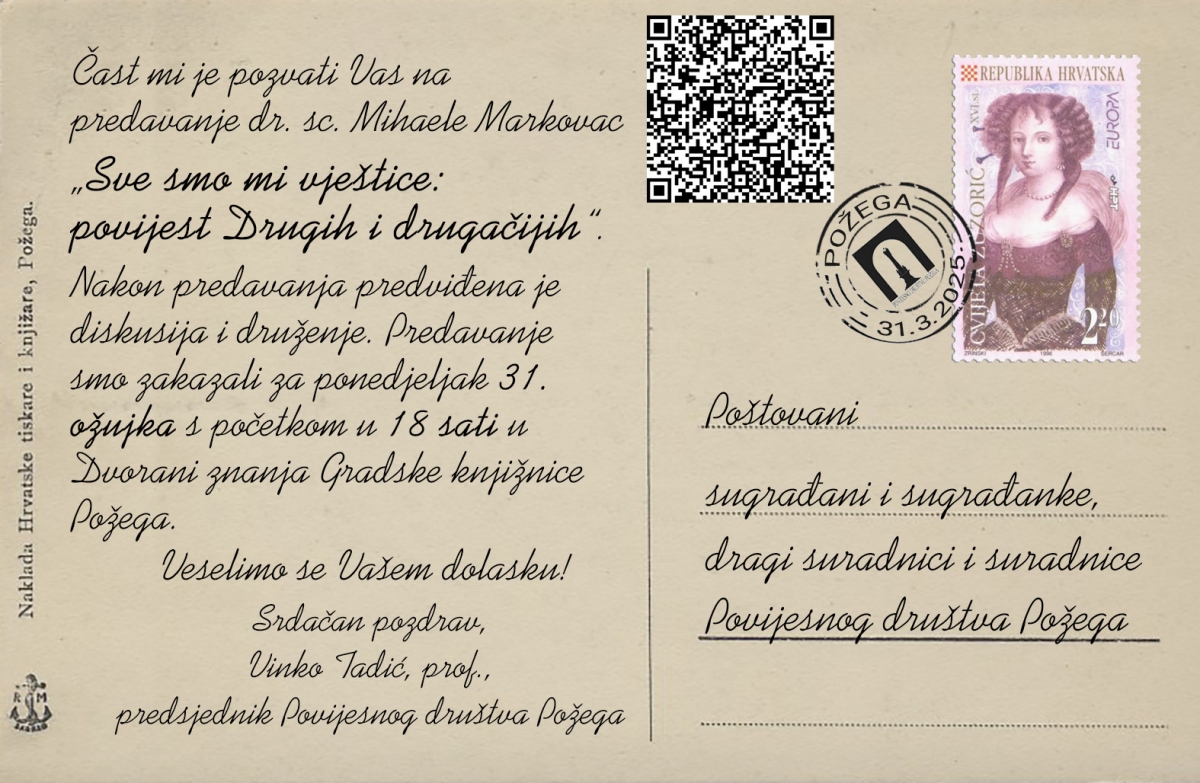 Čast mi je pozvati Vas na
predavanje dr. sc. Mihaele Markovac
„Sve smo mi vještice:
povijest Drugih i drugačijih“.
Nakon predavanja predviđena je
diskusija i druženje. Predavanje
smo zakazali za ponedjeljak 31.
ožujka s početkom u 18 sati u
Dvorani znanja Gradske knjižnice
Požega.
Veselimo se Vašem dolasku!
Srdačan pozdrav,
Vinko Tadić, prof.,
predsjednik Povijesnog društva Požega
Naklada Hrvatske tiskare i knjižare, Požega.
R M
REPUBLIKA HRVATSKA
CVIJETA ZUZORIĆ XVI. st.
EUROPA
HPT
220
ZRINSKI 1996 SERCAR
POŽEGA
31.3.2025.
Poštovani
sugrađani i sugrađanke,
dragi suradnici i suradnice
Povijesnog društva Požega